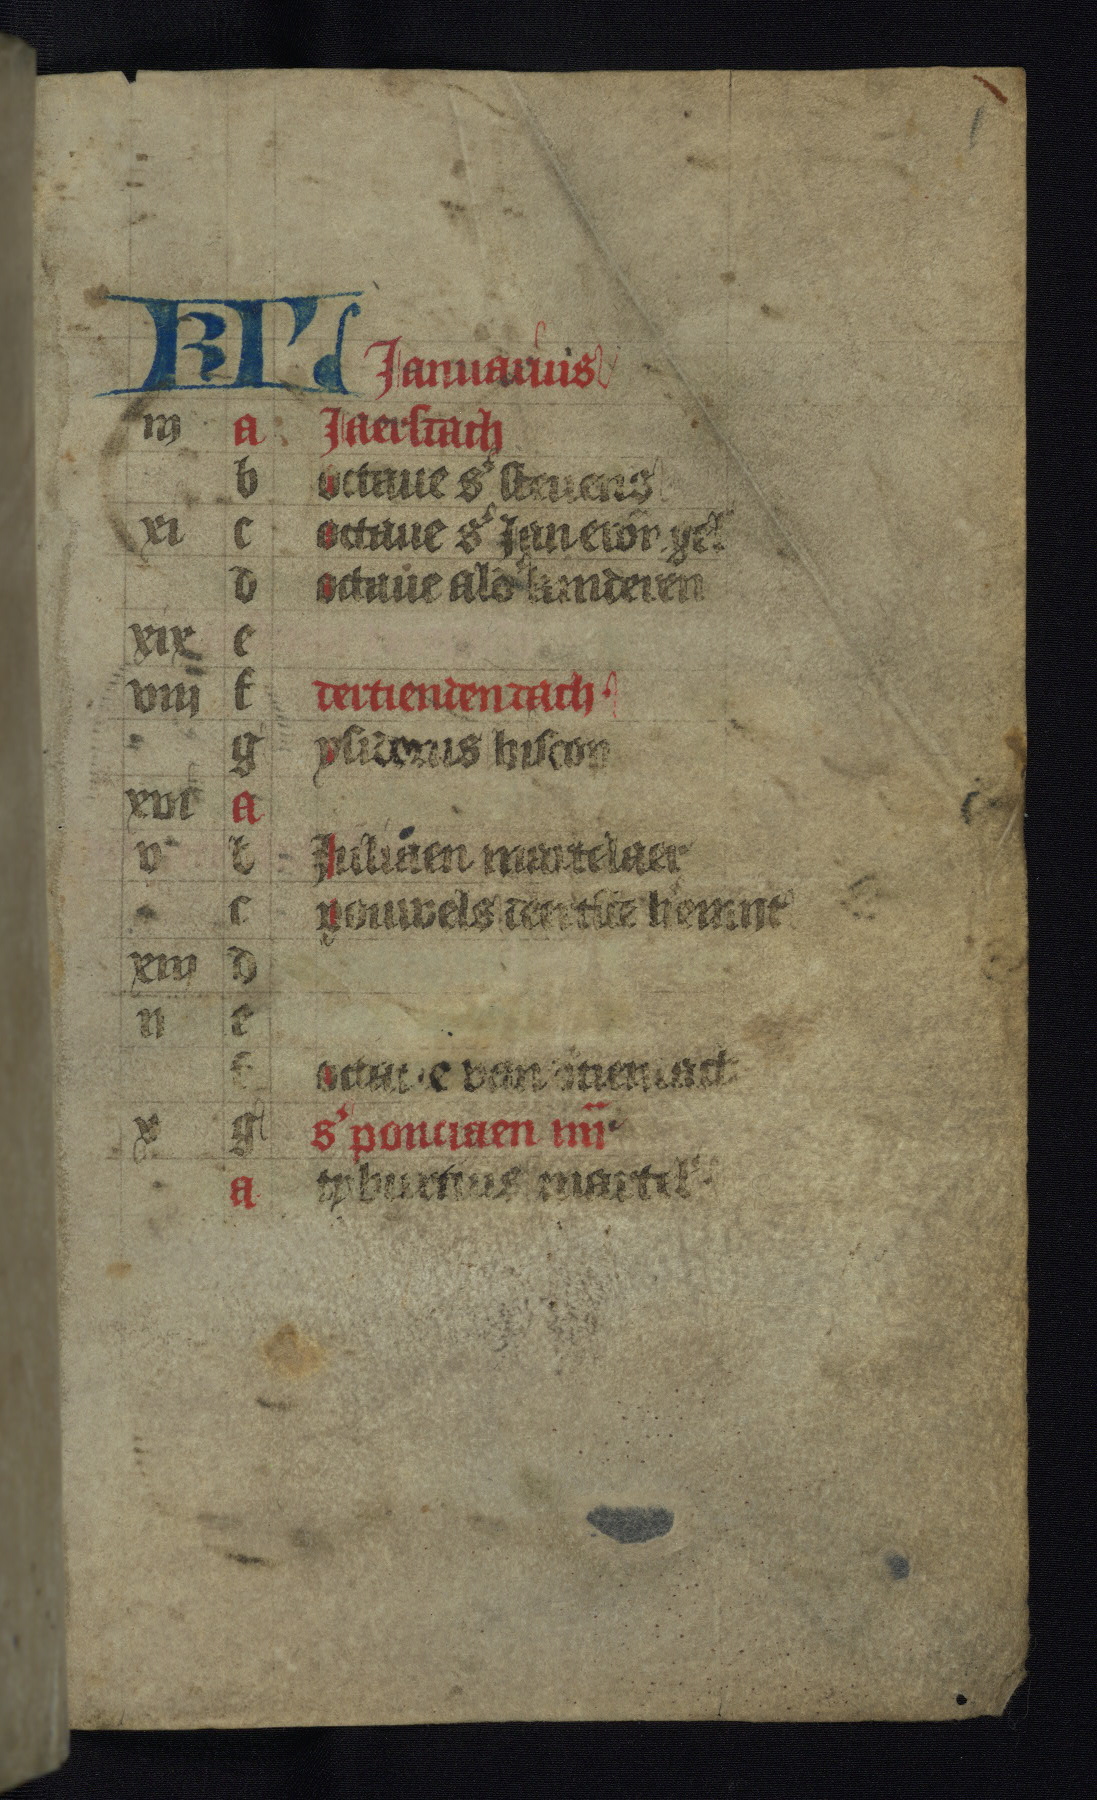 KL Januarius
iij a Jaerstach
b octaue sʳ steuens
xi c octaue sʳ Jan ewāgel
d octaue alr kinderen
xix e
viij f dertiendendach
g ysiderus biscop
xvi a
v b Juliaen martelaer
c pouwels hermite
xiij d
ij e
f octaue van
x g sʳ ponciaen iiij
a tyburtius martel